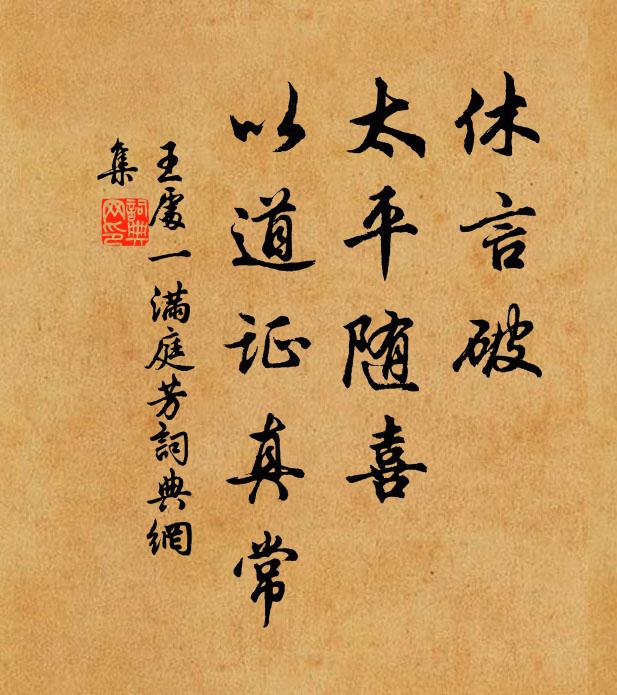 休言破
太平随喜
以道证真常
王處一满庭芳詞典網
集
詞典
网印